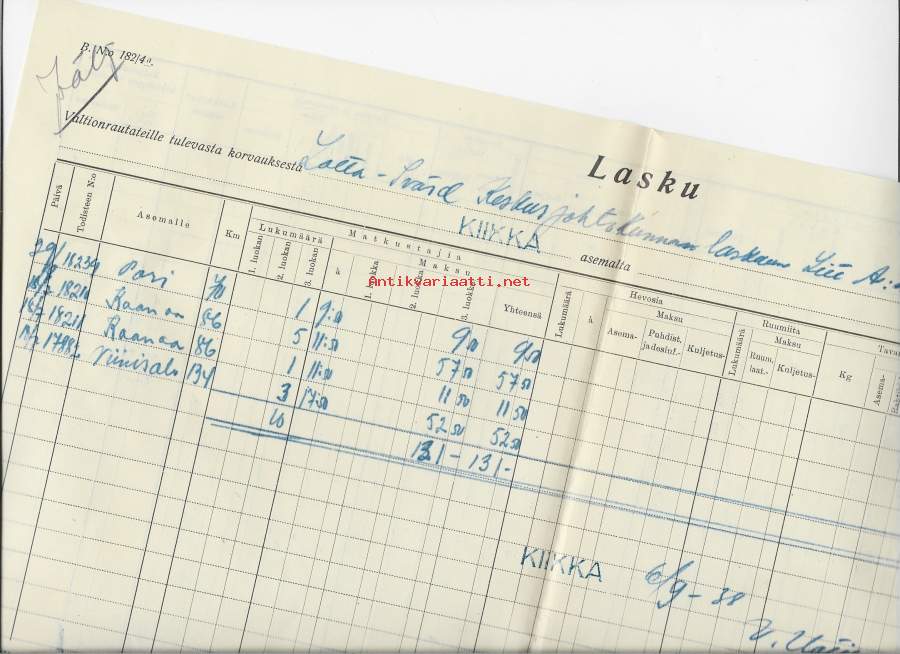 B. N:o 182/4a.
Lasku
Valtionrautateille tulevasta korvauksesta Lotta-Svärd Keskusjohtokunnan laskuun
KIIKKA asemalta
Päivä Todisteen N:o Asemalle Km Matkustajia Hevosia Ruumiita
Lukumäärä Maksu Yhteensä Lukumäärä à Maksu Lukumäärä Maksu Kg
1. luokan 2. luokan 3. luokan à 1. luokka 2. luokka 3. luokka Asema- Puhdist. ja desinf.- Kuljetus- Ruum. laat.- Kuljetus- Asema-
18239 Pori 1 9:50 9.50 9.50
18210 86 5 11:50 57.50 57.50
18211 86 1 11:50 11.50 11.50
Niinisalo 134 3 17:50 52.50 52.50
10 131- 131-
Antikvariaatti.net
KIIKKA 6/9-38